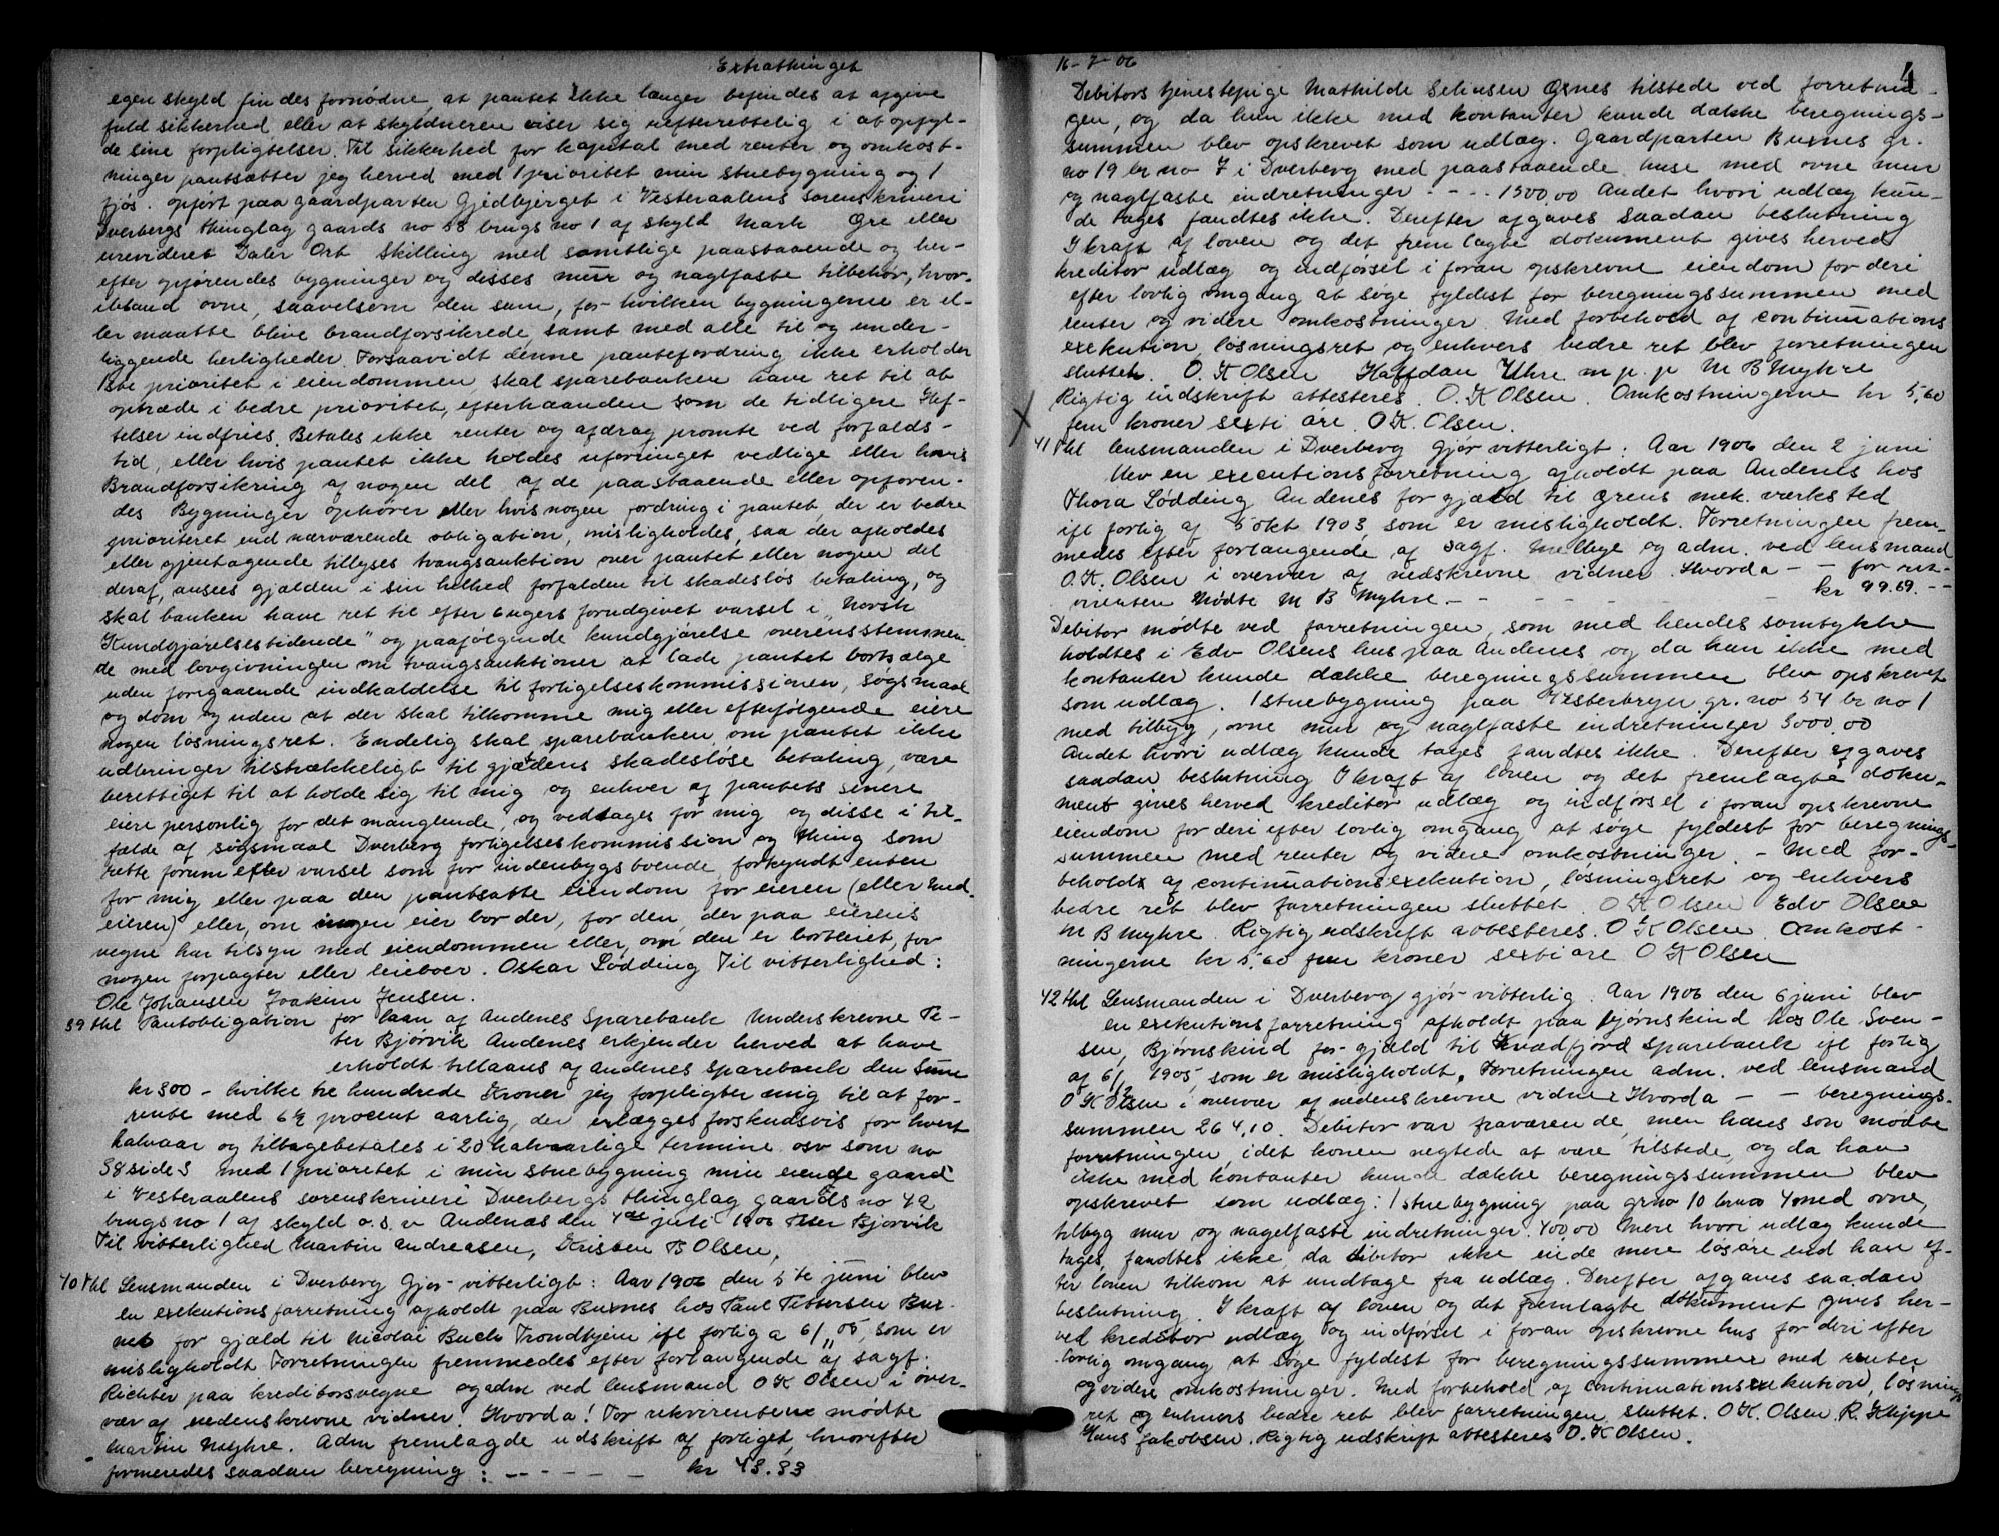 Extrathinget
egen skyld findes fornødne, at pantet ikke længer befindes at afgive
fuld sikkerhed eller at skyldneren viser sig uefterrettelig i at opfyl-
de sine forpligtelser. Til sikkerhed for kapital med renter og omkost-
ninger pantsætter jeg herved med 1 prioritet min stuebygning og 1
fjøs. opført paa gaardparten Gjedbjerget i Vesteraalens sorenskriveri
Dverbergs thinglag gaards no 58 brugs no 1 af skyld Mark Øre eller
urevideret Daler Ort Skilling med samtlige paastaaende og her-
efter opførendes bygninger og disses mur og naglfaste tilbehør, hvor-
ibland ovne, saavelsom den sum, for hvilken bygningerne er el-
ler maatte blive brandforsikrede, samt med alle til og under-
liggende herligheder. Forsaavidt denne pantefordring ikke erholder
1ste prioritet i eiendommen skal sparebanken have ret til at
optræde i bedre prioritet, efterhaanden som de tidligere Hef-
telser indfries. Betales ikke renter og afdrag promte ved forfalds-
tid, eller hvis pantet ikke holdes uforringet vedlige eller hvis
Brandforsikring af nogen del af de paastaaende eller opføren-
des Bygninger ophører eller hvis nogen fordring i pantet, der er bedre
prioriteret end nærværende obligation, misligholdes, saa der afholdes
eller gjentagende tillyses tvangsauktion over pantet eller nogen del
deraf, ansees gjælden i sin helhed forfalden til skadesløs betaling, og
skal banken have ret til efter 6 ugers forudgivet varsel i "Norsk
Kundgjørelsestidende" og paafølgende kundgjørelse overensstemmen
de med lovgivningen om tvangsauktioner at lade pantet bortsælge
uden foregaaende indkaldelse til forligelseskommissionen, søgsmaal
og dom og uden at der skal tilkomme mig eller efterfølgende eiere
nogen løsningsret. Endelig skal sparebanken, om pantet ikke
udbringer tilstrækkeligt til gjældens skadesløse betaling, være
berettiget til at holde sig til mig og enhver af pantets senere
eiere personlig for det manglende, og vedtages for mig og disse i til-
fælde af søgsmaal Dverberg forligelseskommission og thing som
rette forum efter varsel som for indenbygsboende, forkyndt enten
for mig eller paa den pantsatte eiendom for eieren (eller med
eieren) eller, om ingen eier bor der, for den, der paa eierens
vegne har tilsyn med eiendommen eller, om den er bortleiet, for
nogen forpagter eller leieboer. Oskar Lødding Til vitterlighed:
Ole Johansen Joakim Jensen.
39 thl Pantobligation for laan af Andenes Sparebank Underskrevne Pe-
ter Bjørvik Andenes erkjender herved at have
erholdt tillaans af Andenes sparebank den Sum
kr 300 - hvilke tre hundrede Kroner jeg forpligter mig til at for-
rente med 6½ procent aarlig, der erlægges forskudsvis for hvert
halvaar og tilbagebetales i 20 halvaarlige terminer osv som no
38 side 3 med 1 prioritet i min stuebygning min eiende gaard
i Vesteraalens sorenskriveri Dverbergs thinglag gaards no 42
brugs no 1 af skyld o.s.v Andenæs den 4de juli 1906 Peter Bjørvik
Til vitterlighed Martin Andreasen, Kristen B Olsen,
40 thl Lensmanden i Dverberg Gjør vitterligt: Aar 1906 den 5te juni blev
en exekutionsforretning afholdt paa Buxnes hos Paul Pettersen Bux-
nes for gjæld til Nicolai Buch Trondhjem ifl forlig a 6/11 05, som er
misligholdt Forretningen fremmedes efter forlangende af sagf.
Richter paa kreditorsvegne og adm ved lensmand O K Olsen i over-
vær af nedenskrevne vidner. Hvorda! For rekvirenten mødte
Martin Myhre. Adm fremlagde udskrift af forliget, hvorefter
formeredes saadan beregning: - - - - - kr 43.33
16-7-06
4
Debitors tjenestepige Mathilde Selinsen Øsnes tilstede ved forretnin-
gen, og da hun ikke med kontanter kunde dække beregnings-
summen blev opskrevet som udlæg. Gaardparten Buxnes gr.
no 19 br no 7 i Dverberg med paastaaende huse med ovne mur
og naglfaste indretninger - - - 1500,00 Andet hvori udlæg kun-
de tages fandtes ikke. Derefter afgaves saadan beslutning
I kraft af loven og det fremlagte dokument gives herved
kreditor udlæg og indførsel i foran opskrevne eiendom for deri
efter lovlig omgang at søge fyldest for beregningssummen med
renter og videre omkostninger. Med forbehold af continuations
exekution, løsningsret og enhvers bedre ret blev forretningen
sluttet. O. K Olsen Halfdan Uhre m. p. p M B Myhre
Rigtig indskrift attesteres. O. K Olsen. Omkostningerne kr 5,60
fem kroner sexti øre. O K. Olsen.
41 thl Lensmanden i Dverberg Gjør vitterligt: Aar 1906 den 2 juni
blev en executionsforretning afholdt paa Andenes hos
Thora Lødding Andenes for gjæld til Ørens mek. værksted
ifl forlig af 5 okt 1903, som er misligholdt. Forretningen frem-
medes efter forlangende af sagf. Mellbye og adm. ved lensmand
O. K. Olsen i overvær af nedskrevne vidner. Hvorda - - for rek-
virenten Mødte M B Myhre - - - - - - - kr 99.69. - -
Debitor mødte ved forretningen, som med hendes samtykke
holdtes i Edv Olsens hus paa Andenes og da hun ikke med
kontanter kunde dække beregningssummen blev opskrevet
som udlæg. 1 stuebygning paa Vesterbryn gr. no 54 br no 1
med tilbyg, ovne mur og naglfaste indretninger 3000,00
Andet hvori udlæg kunde tages fandtes ikke. Derefter afgaves
saadan beslutning I kraft af loven og det fremlagte doku-
ment gives herved kreditor udlæg og indførsel i foran opskrevne
eiendom for deri efter lovlig omgang at søge fyldest for beregnings-
summen med renter og videre omkostninger. - Med for-
behold af continuationsexekution, løsningsret og enhvers
bedre ret blev forretningen sluttet. O K Olsen Edv Olsen
M B Myhre. Rigtig udskrift attesteres. O K Olsen. Omkost-
ningerne kr 5,60 fem kroner sexti øre O K Olsen
42 thl Lensmanden i Dverberg gjør vitterlig. Aar 1906 den 6 juni blev
en exekutionsforretning afholdt paa Bjørnskind hos Ole Sven-
sen, Bjørnskind for gjæld til Kvædfjord sparebank ifl forlig
af 6/12 1905, som er misligholdt. Forretningen adm. ved lensmand
O K Olsen i overvær af nedenskrevne vidner Hvorda - - beregnings-
summen 264,10. Debitor var fraværende, men hans søn mødte
forretningen, idet konen negtede at være tilstede, og da han
ikke med kontanter kunde dække beregningssummen blev
opskrevet som udlæg: 1 stuebygning paa gr no 10 br no 4 med ovne,
tilbyg mur og nagelfaste indretninger. 400,00 Mere hvori udlæg kunde
tages, fandtes ikke, da debitor ikke eiede mere løsøre end han ef-
ter loven tilkom at undtage fra udlæg. Derefter afgaves saadan
beslutning. I kraft af loven og det fremlagte dokument gives her-
ved kreditor udlæg og indførsel i foran opskrevne hus for deri efter
lovlig omgang at søge fyldest for beregningssummen med renter
og videre omkostninger. Med forbehold af continuationsexekution, løsnings
ret og enhvers bedre ret blev forretningen sluttet. O K. Olsen R. Klippe
Hans Jakobsen. Rigtig udskrift attesteres O. K Olsen.